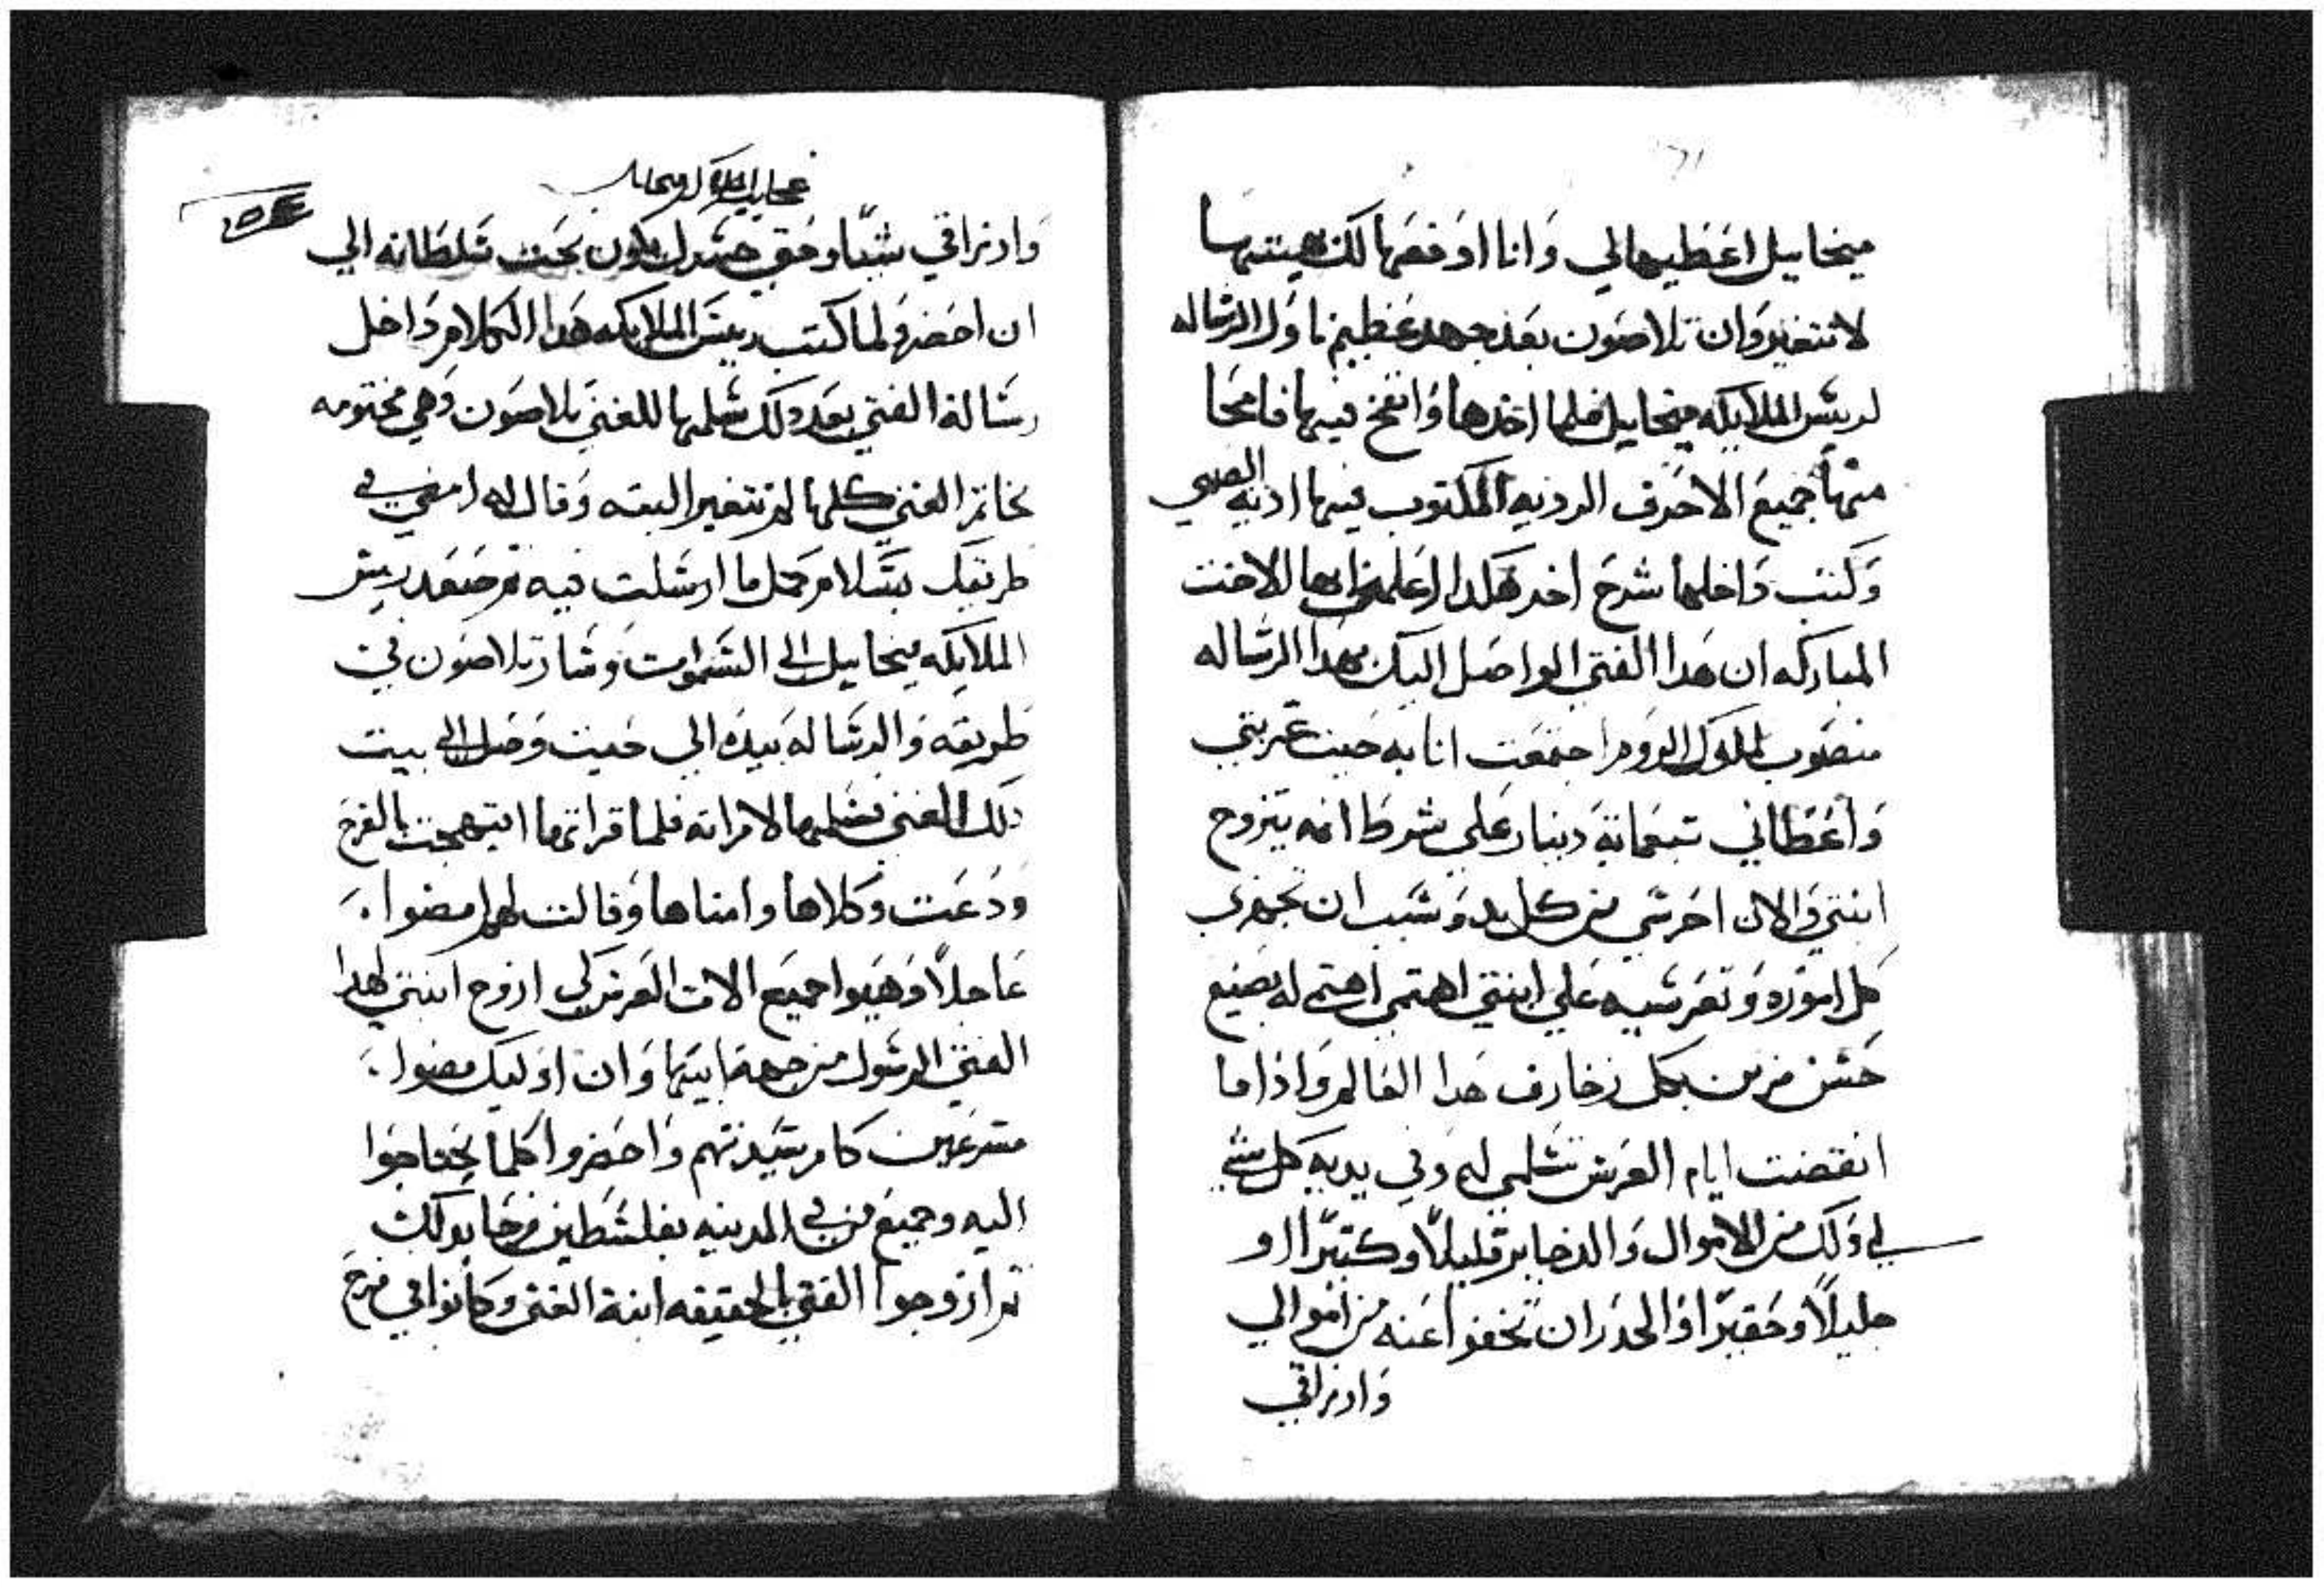 ميخاييل اعطيهالي وانا اوقفها لك بهيتتها
لا تتغير وان تلاصون بعد جهد عظيم ناول الرساله
لرييس الملايكه ميخاييل فلما اخدها وانفخ فيها فامحا
منها جميع الاحرف الرديه المكتوب فيها ادية الصبي
وكتب داخلها شرح اخر هكدا اعلمي ايها الاخت
المباركه ان هدا الفتي الواصل اليك بهدا الرساله
منصوب لملوك الروم اجتمعت انا به حيت غربتي
واعطاني تبعماية دينار علي شرط انه يتزوج
ابنتي والان احرسي من كل بد وسبب ان تجهزي
كل اموره وتعرسيه علي ابنتي اهتمي اهتمي له بصنيع
حسن مزين بكل زخارف هدا العالم واذا ما
انقضت ايام العرس تسلمي له وفي يديه كل شي
لي ولك من الاموال والدخاير قليلاً وكتيراً او
جليلاً وحقيراً والحدر ان تخفوا عنه من اموالي
وارزاقي
عجايب الملاك ميخاييل
وارزاقي شياً وحقي حسدك يكون تحت سلطانه الي
ان احضر ولما كتب رييس الملايكه هدا الكلام داخل
رسالة الفتي بعد دلك سلمها للغني تلاصون وهي مختومه
بخاتم الغني كلها لم تتغير البته وقال له امضي في
طريقك بسلام كمل ما ارسلت فيه تم صعد رييس
الملايكه ميخاييل الي السموات وسار تلاصون في
طريقه والرساله بيده الي حيت وصل الي بيت
دلك الغني فسلمها لامراته فلما قراتها ابتهجت بالفرح
ودعت وكلاها وامناها وقالت لهم امضوا
عاجلاً وهيوا جميع الات العرس لكي ازوج ابنتي لهدا
الفتي الرسول من جهة ابيها وان اوليك مضوا
مسرعين كامر سيدتهم واحضروا كلما يحتاجوا
اليه وجميع من في المدينه بفلسطين فرحا بدلك
تم ازوجوا الفتي بالحقيقه ابنة الغني وكانوا في فرح